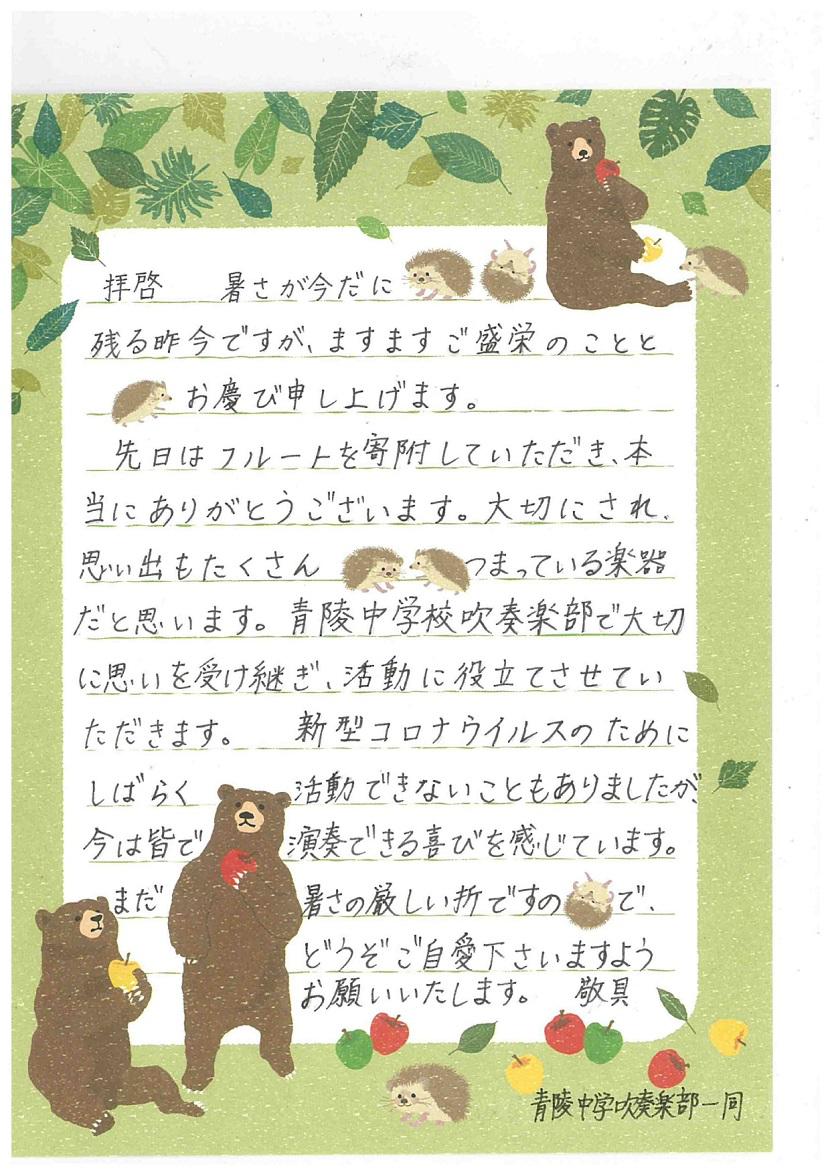 拝啓　暑さが今だに
残る昨今ですが、ますますご盛栄のことと
お慶び申し上げます。
先日はフルートを寄附していただき、本
当にありがとうございます。大切にされ、
思い出もたくさんつまっている楽器
だと思います。青陵中学校吹奏楽部で大切
に思いを受け継ぎ、活動に役立てさせてい
ただきます。　新型コロナウイルスのために
しばらく活動できないこともありましたが、
今は皆で演奏できる喜びを感じています。
まだ暑さの厳しい折ですので、
どうぞご自愛下さいますよう
お願いいたします。　敬具
青陵中学吹奏楽部一同